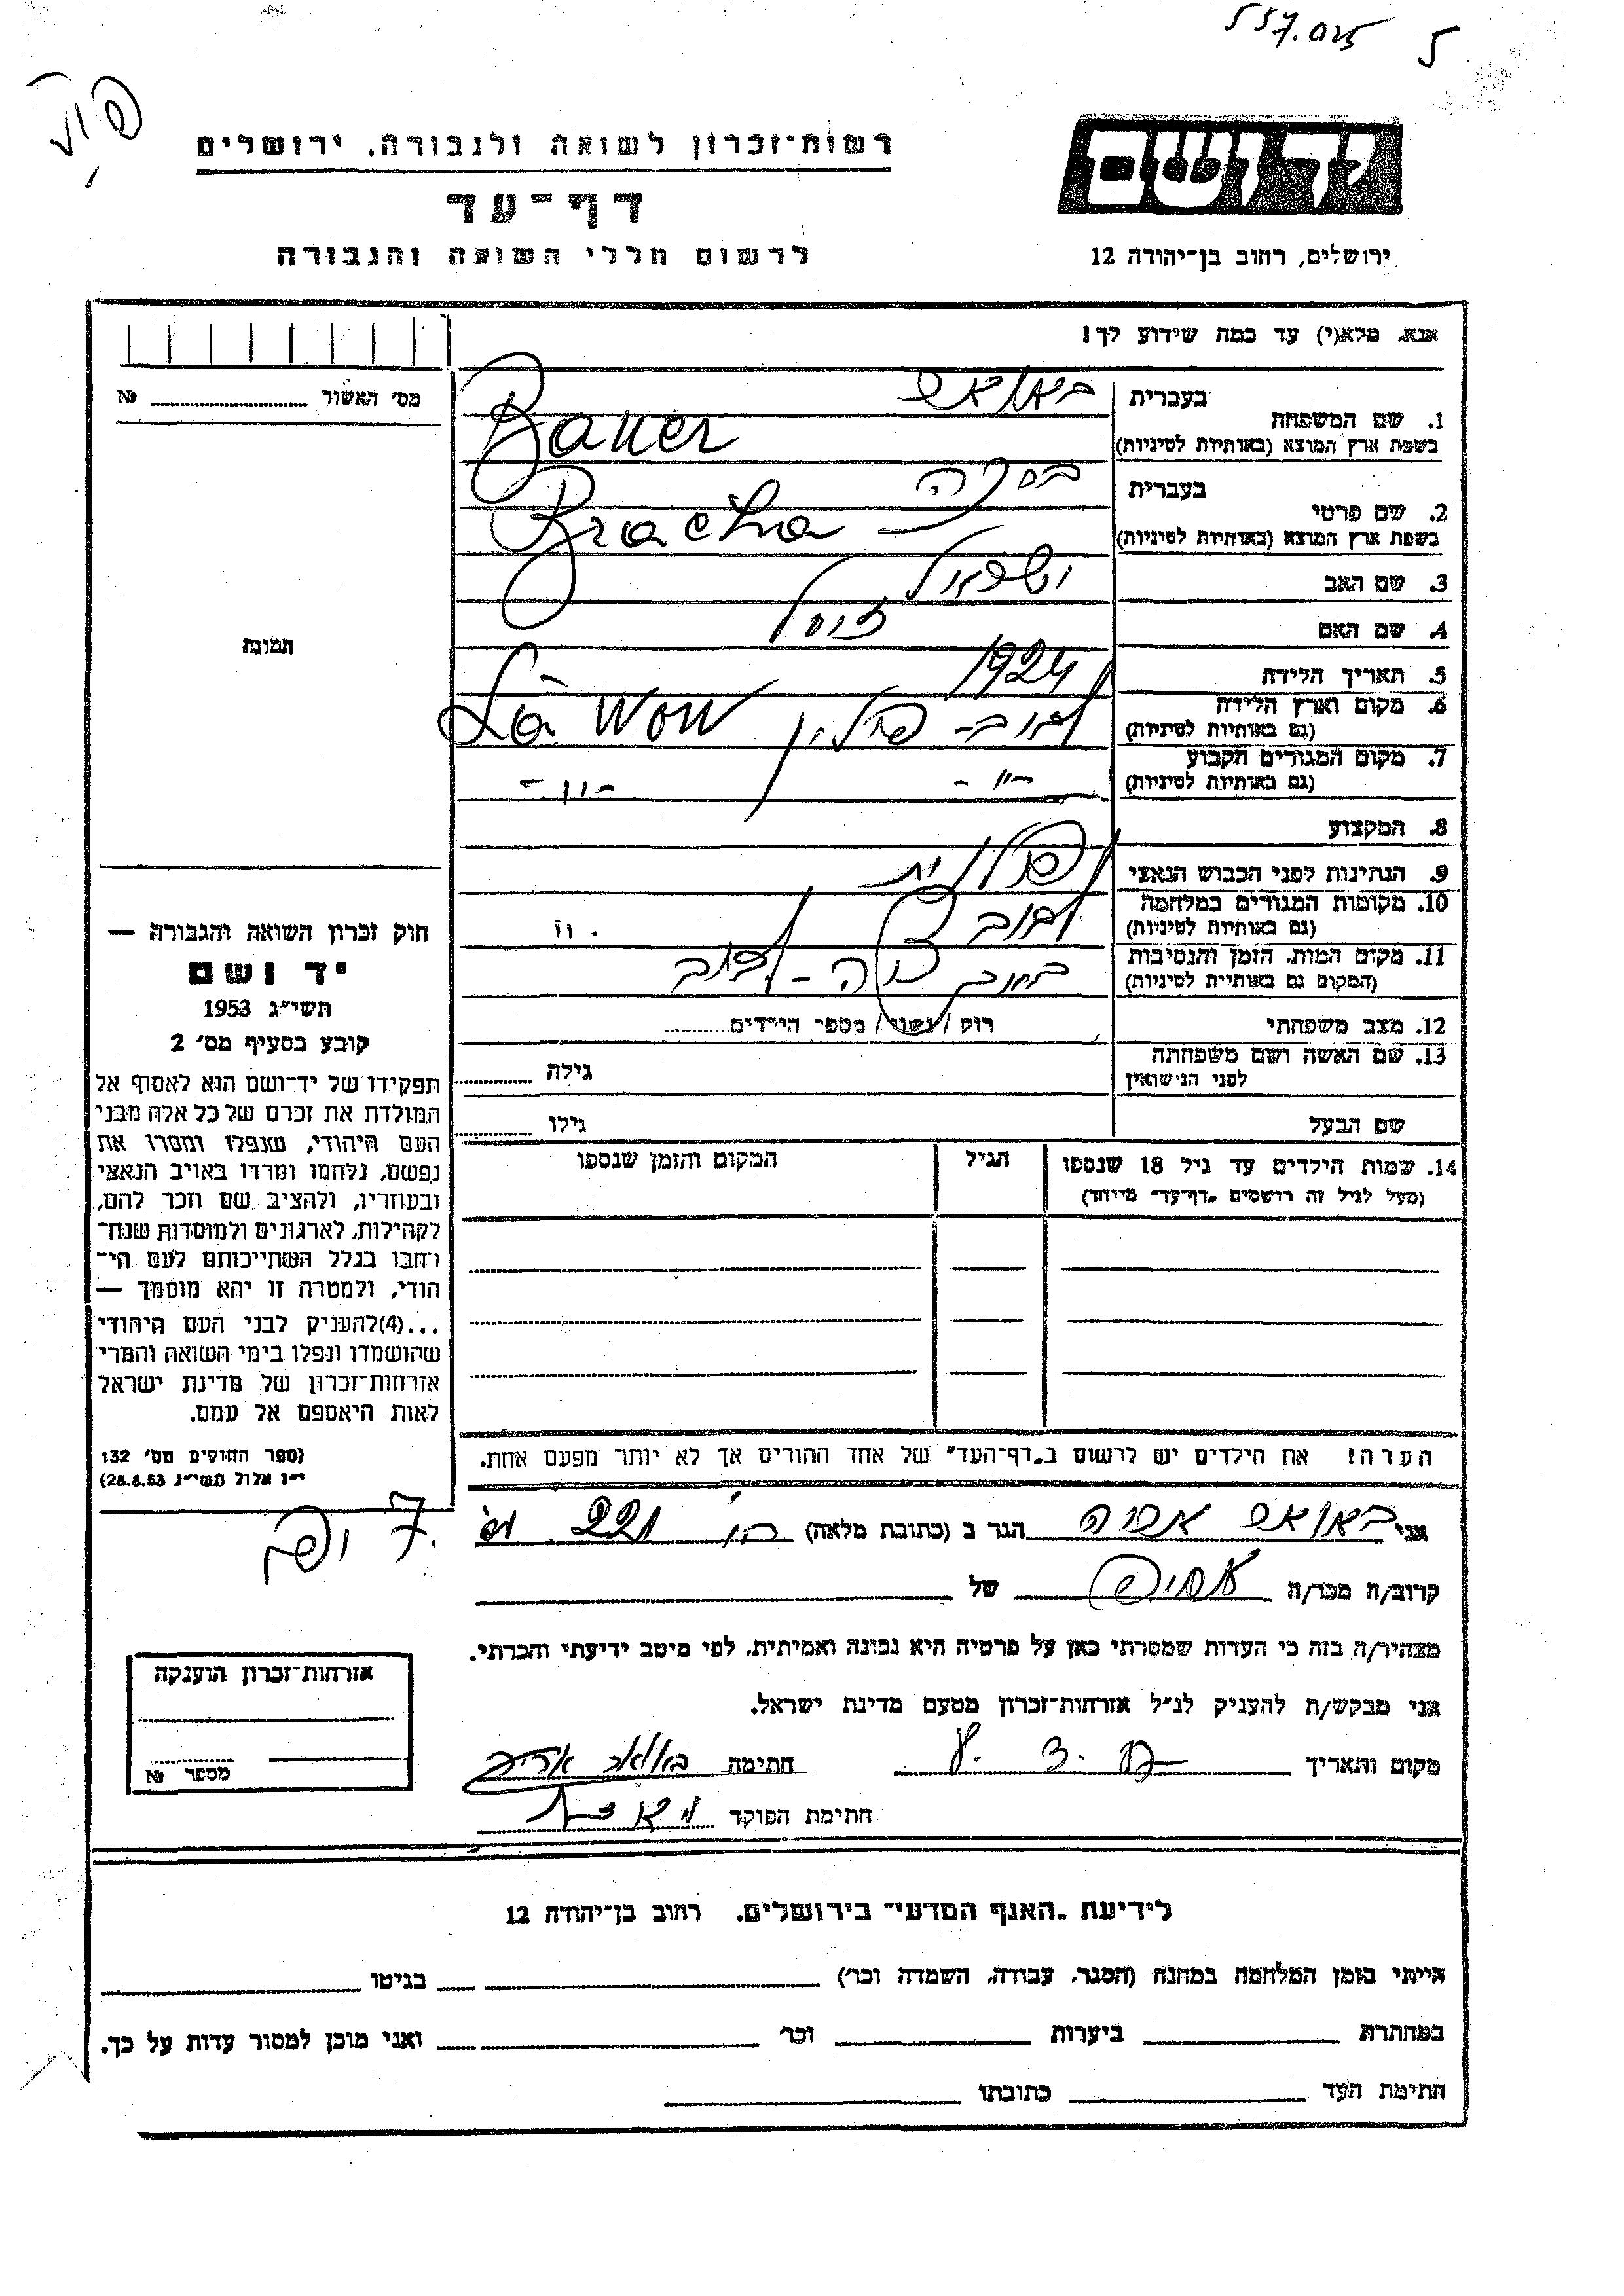 557.025 5
רשות-זכרון לשואה ולגבורה, ירושלים
דף-עד
לרשום חללי השואה והגבורה
יד ושם
ירושלים, רחוב בן-יהודה 12
אנא, מלא(י) עד כמה שידוע לך!
מס' האשור № 
1. שם המשפחה בעברית באואר
בשפת ארץ המוצא (באותיות לטיניות) Bauer
2. שם פרטי בעברית ברכה
בשפת ארץ המוצא (באותיות לטיניות) Bracha
3. שם האב
4. שם האם
5. תאריך הלידה 1924
6. מקום וארץ הלידה (גם באותיות לטיניות) לבוב - פולין
7. מקום המגורים הקבוע (גם באותיות לטיניות) -"- -"-
8. המקצוע
9. הנתינות לפני הכבוש הנאצי פולנית
10. מקומות המגורים במלחמה (גם באותיות לטיניות) לבוב
11. מקום המות, הזמן והנסיבות (המקום גם באותיות לטיניות)
12. מצב משפחתי רווק / נשוי / מספר הילדים
13. שם האשה ושם משפחתה לפני הנישואין גילה
שם הבעל גילו
14. שמות הילדים עד גיל 18 שנספו הגיל המקום והזמן שנספו
(מעל לגיל זה רושמים "דף-עד" מיוחד)
הערה! את הילדים יש לרשום ב"דף-העד" של אחד ההורים אך לא יותר מפעם אחת.
תמונה
חוק זכרון השואה והגבורה —
יד ושם
תשי"ג 1953
קובע בסעיף מס' 2
תפקידו של יד-ושם הוא לאסוף אל
המולדת את זכרם של כל אלה מבני
העם היהודי, שנפלו ומסרו את
נפשם, נלחמו ומרדו באויב הנאצי
ובעוזריו, ולהציב שם וזכר להם,
לקהילות, לארגונים ולמוסדות שנח-
רבו בגלל השתייכותם לעם הי-
הודי, ולמטרה זו יהא מוסמך —
...(4)להעניק לבני העם היהודי
שהושמדו ונפלו בימי השואה והמרי
אזרחות-זכרון של מדינת ישראל
לאות היאספם אל עמם.
(ספר החוקים מס' 132
י"ז אלול תשי"ג 28.8.53)
אני באואר הגר ב (כתובת מלאה) 221
קרוב/ה מכר/ה של
מצהיר/ה בזה כי העדות שמסרתי כאן על פרטיה היא נכונה ואמיתית, לפי מיטב ידיעתי והכרתי.
אני מבקש/ת להעניק לנ"ל אזרחות-זכרון מטעם מדינת ישראל.
מקום ותאריך חתימה באואר
חתימת הפוקד
אזרחות-זכרון הוענקה
מספר №
לידיעת "האגף המדעי" בירושלים, רחוב בן-יהודה 12
הייתי בזמן המלחמה במחנה (הסגר, עבודה, השמדה וכו') בגיטו
במחתרת ביערות וכו' ואני מוכן למסור עדות על כך.
חתימת העד כתובתו